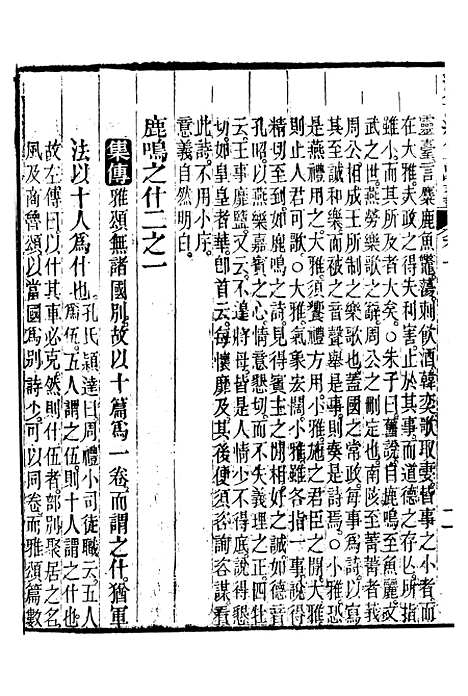 靈臺言麋鹿魚鼈蕩刺飲酒韓奕歌取妻皆事之小者而
在大雅夫政之得失利害止於其事而道德之存亡所指
雖小而其所及者大矣○朱子曰舊說自鹿鳴至魚麗文
武之世燕勞樂歌之辭周公之刪定也南陔至菁菁者莪
周公相成王所制之樂歌也蓋國之常政每事為詩焉寫
其至誠和樂而被之音聲舉是事則奏是詩焉○小雅恐
是燕禮用之大雅須饗禮方用小雅施之君臣之閒大雅
則止人君可歌○大雅氣象宏闊小雅雖各指一事說得
精切至到如鹿鳴之詩見得賓主之閒相好之誠如德音
孔昭以燕樂嘉賓之心情意懇切而不失義理之正四牡
云王事靡盬又云不遑將母皆是人情少不得底說得懇
切如皇皇者華即首云每懷靡及其後便須咨詢咨謀看
此詩不用小序
意義自然明白
鹿鳴之什二之一
集傳雅頌無諸國別故以十篇為一卷而謂之什猶軍
法以十人為什也孔氏穎達曰周禮小司徒職云五人
為伍五人謂之伍則十人謂之什也
故左傳曰以什共車必克然則什伍者部別聚居之名
風及商魯頌以當國為別詩少可以同卷而雅頌篇數